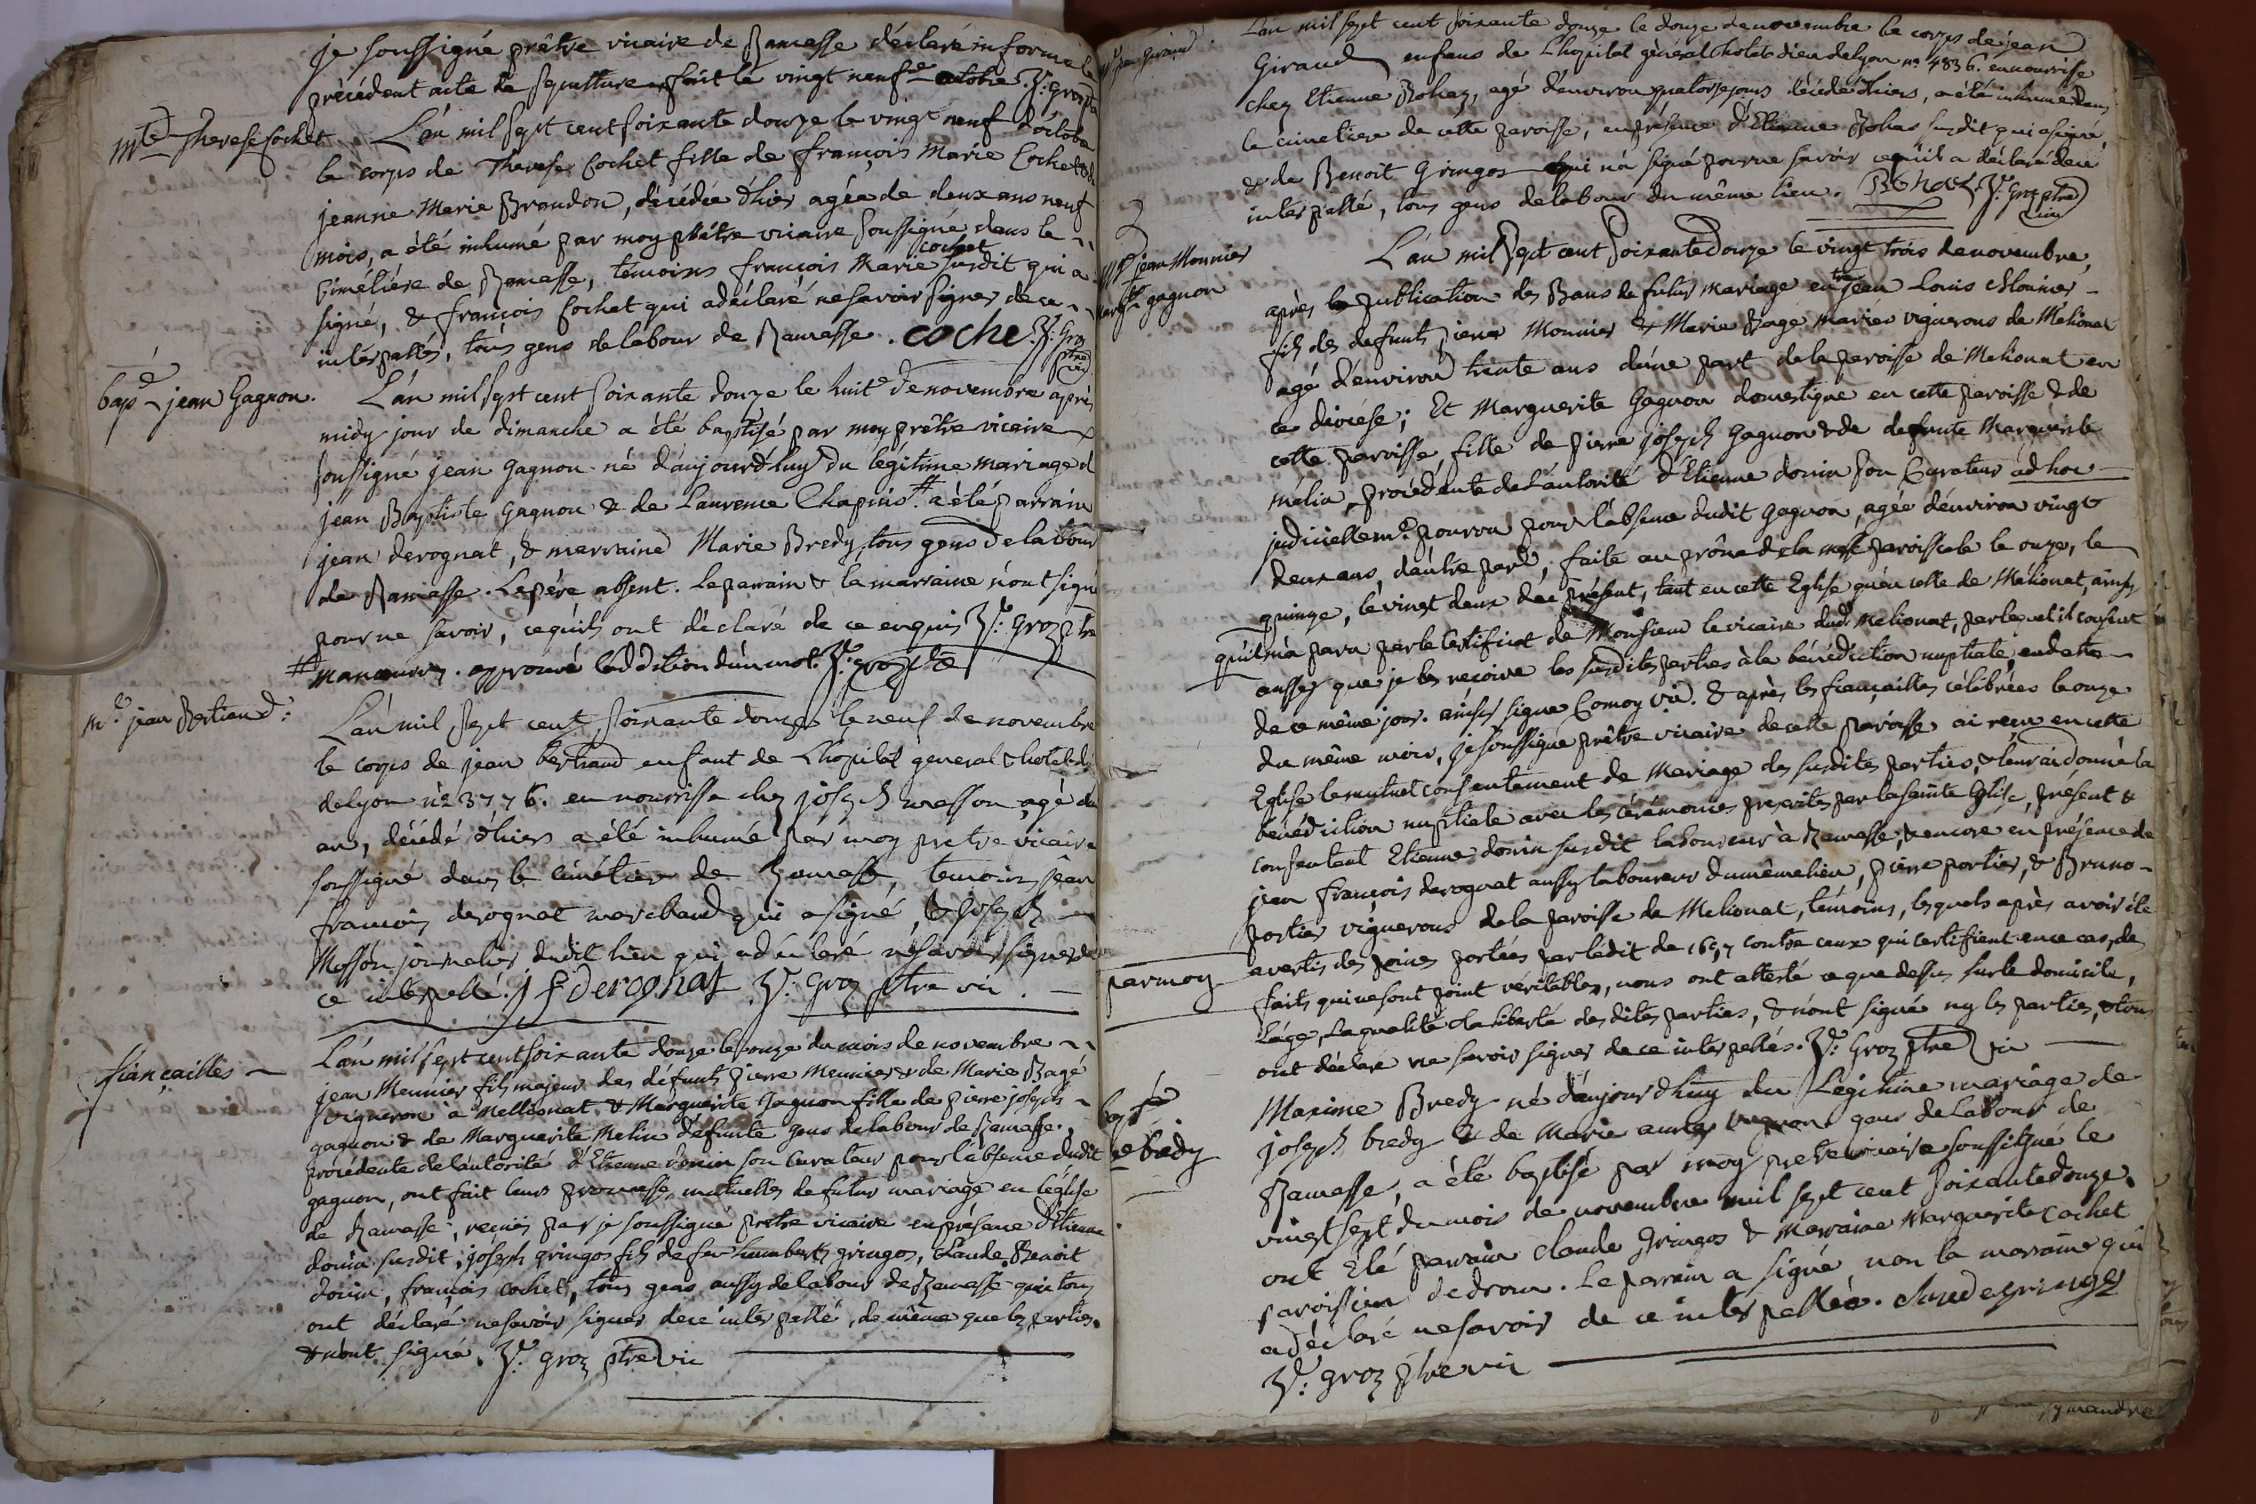 je soussigné prêtre vicaire de Ramasse déclaré informe le
précédent acte de sepulture fait le vingt neufe octobre. Yt: groz
mte Therese Cochet
L'an mil sept cent soixante douze le vingt neuf d'octobre
le corps de Therese Cochet fille de françois Marie Cochet & de
jeanne Marie Brandon, décédée d'hier agée de deux ans neuf
mois, a été inhumé par moy prêtre vicaire soussigné dans le
cimétière de Ramasse, témoins françois Marie cochet susdit qui a
signé, & françois Cochet qui a déclaré ne savoir signer de ce
intérpallés, tous gens de labour de Ramasse. coche. Yt: Groz
ptre vic
bapt jean Gagnon.
L'an mil sept cent soixante douze le huit de novembre après
midy jour de dimanche a été baptisé par moy prêtre vicaire
soussigné jean Gagnon né d'aujourd'huy du légitime mariage d
jean Baptiste Gagnon & de Laurence Chapuis # a été parrain
jean derognat, & marraine Marie Bredy, tous gens de labour
de Ramasse. Le père absent. Le parain & la marraine n'ont signé
pour ne savoir, ce qu'ils ont déclaré de ce enquis Yt: groz ptre
# manœuvre. approuvé l'addition d'un mot. Yt: groz ptre
mt jean Bertrand:
L'an mil sept cent soixante douze le neuf de novembre
le corps de jean bertrand enfant de L'hopital general & hotel di
delyon no 3776. en nourrisse chez joseph masson, agé d'un
an, décédé d'hier a été inhumé par moy prêtre vicaire
soussigné dans le cimétiere de Ramasse, temoins jean
françois derognat marchand qui a signé, & joseph
Masson journalier dudit lieu qui a déclaré ne savoir signer de
ce intérpellé. j f derognat Yt: groz ptre vic.
fiançailles
L'an mil sept cent soixante douze le onze du mois de novembre
jean Meunier fils majeur des défunts pierre Meunier & de Marie Bagé
vigneron à Mellionat & Marguerite Gagnon fille de pierre joseph
gagnon & de Marguerite Melin défunte gens de labour de Ramasse.
procédente de l'autorité d'Etienne donin son Curateur pour l'absence dudit
gagnon, ont fait leurs promesses mutuelles de futur mariage en l'église
de Ramasse; reçues par je soussigné prêtre vicaire en présence d'Etienne
donin susdit, joseph gringos fils de feu humbert gringos, Claude Benoit
donin, françois cochet, tous gens aussy de labour de Ramasse qui tous
ont déclaré ne savoir signer de ce intérpellé, de même que les parties
& n'ont signé. Yt: groz ptre vic
mt jean giraud.
L'an mil sept cent soixante douze le douze de novembre le corps de jean
Giraud enfans de L'hopital général & hotel dieu de lyon no 4836. en nourrisse
chez Etienne Rohaz, agé d'environ quatorse jours décédé d'hier, a été inhumé dans
le cimetiere de cette paroisse, en présence d'Etienne Rohas susdit qui a signé
& de Benoit Gringos qui n'a signé pour ne savoir ce qu'il a déclaré de ce
intérpellé, tous gens de labour du même lieu. Rohaz Yt: groz ptre
vic
2
mge jean Monnier
margte gagnon
L'an mil sept cent soixante douze le vingt trois de novembre,
après la publication des Bans de futur mariage entre jean Louis Monier
fils des defunts pierre Monnier & Marie Bagé mariés vignerons de Melionat
agé d'environ trente ans d'une part de la paroisse de Melionat en
ce diocése; Et Marguerite Gagnon domestique en cette paroisse & de
cette paroisse fille de pierre joseph Gagnon & de defunte Marguerite
mélin, procédente de l'autorité d'Etienne donin son Curateur ad hoc
judiciellemt. pourvu pour l'absence dudit Gagnon, agée d'environ vingt
deux ans, d'autre part, faite au prône de la messe paroissiale le onze, le
quinze, le vingt deux du présent, tant en cette Eglise qu'en celle de Mélionat, ainsy
qu'il m'a paru par le certificat de Monsieur le vicaire dudt Melionat, par lequel il consent
aussy que je les recoive les susdites parties à la bénédiction nuptiale, en date
de ce même jour. ainsy signé Comoy vic. & après les fiançailles célébrées le onze
du même mois, je soussigné prêtre vicaire de cette paroisse ai reçu en cette
Eglise le mutuel consentement de Mariage des susdites parties, & leur ai donné la
bénédiction nuptiale avec les cérémonies prescrites par la sainte Eglise, présent &
consentent Etienne donin susdit laboureur à Ramasse, & encore en présence de
jean françois derognat aussy laboureur du même lieu, pierre portier, & Bruno
portier vignerons de la paroisse de Melionat, témoins, lesquels après avoir été
par moy avertis des peines portées par l'édit de 1697 contre ceux qui certifient en ce cas, des
faits qui ne sont point véritables, nous ont attesté ce que dessus sur le domicile,
l'age, la qualité & la liberté desdites parties, & n'ont signé ny les parties, & tous
ont déclaré ne savoir signer de ce intérpellés. Yt: Groz ptre vic
bapte
bredy
Maxime Bredy né d'aujourd'huy du Légitime mariage de
joseph bredy & de Marie gens de Labour de
Ramasse, a été baptisé par moy pretre vicaire soussigné le
vingt sept du mois de novembre mil sept cent soixante douze.
ont été parrain Claude Gringos & Marraine Marguerite cochet
paroissien de drom. Le parrain a signé non la maraine qui
a déclaré ne savoir de ce intérpellée. Claude gringos
Yt: groz ptre vic